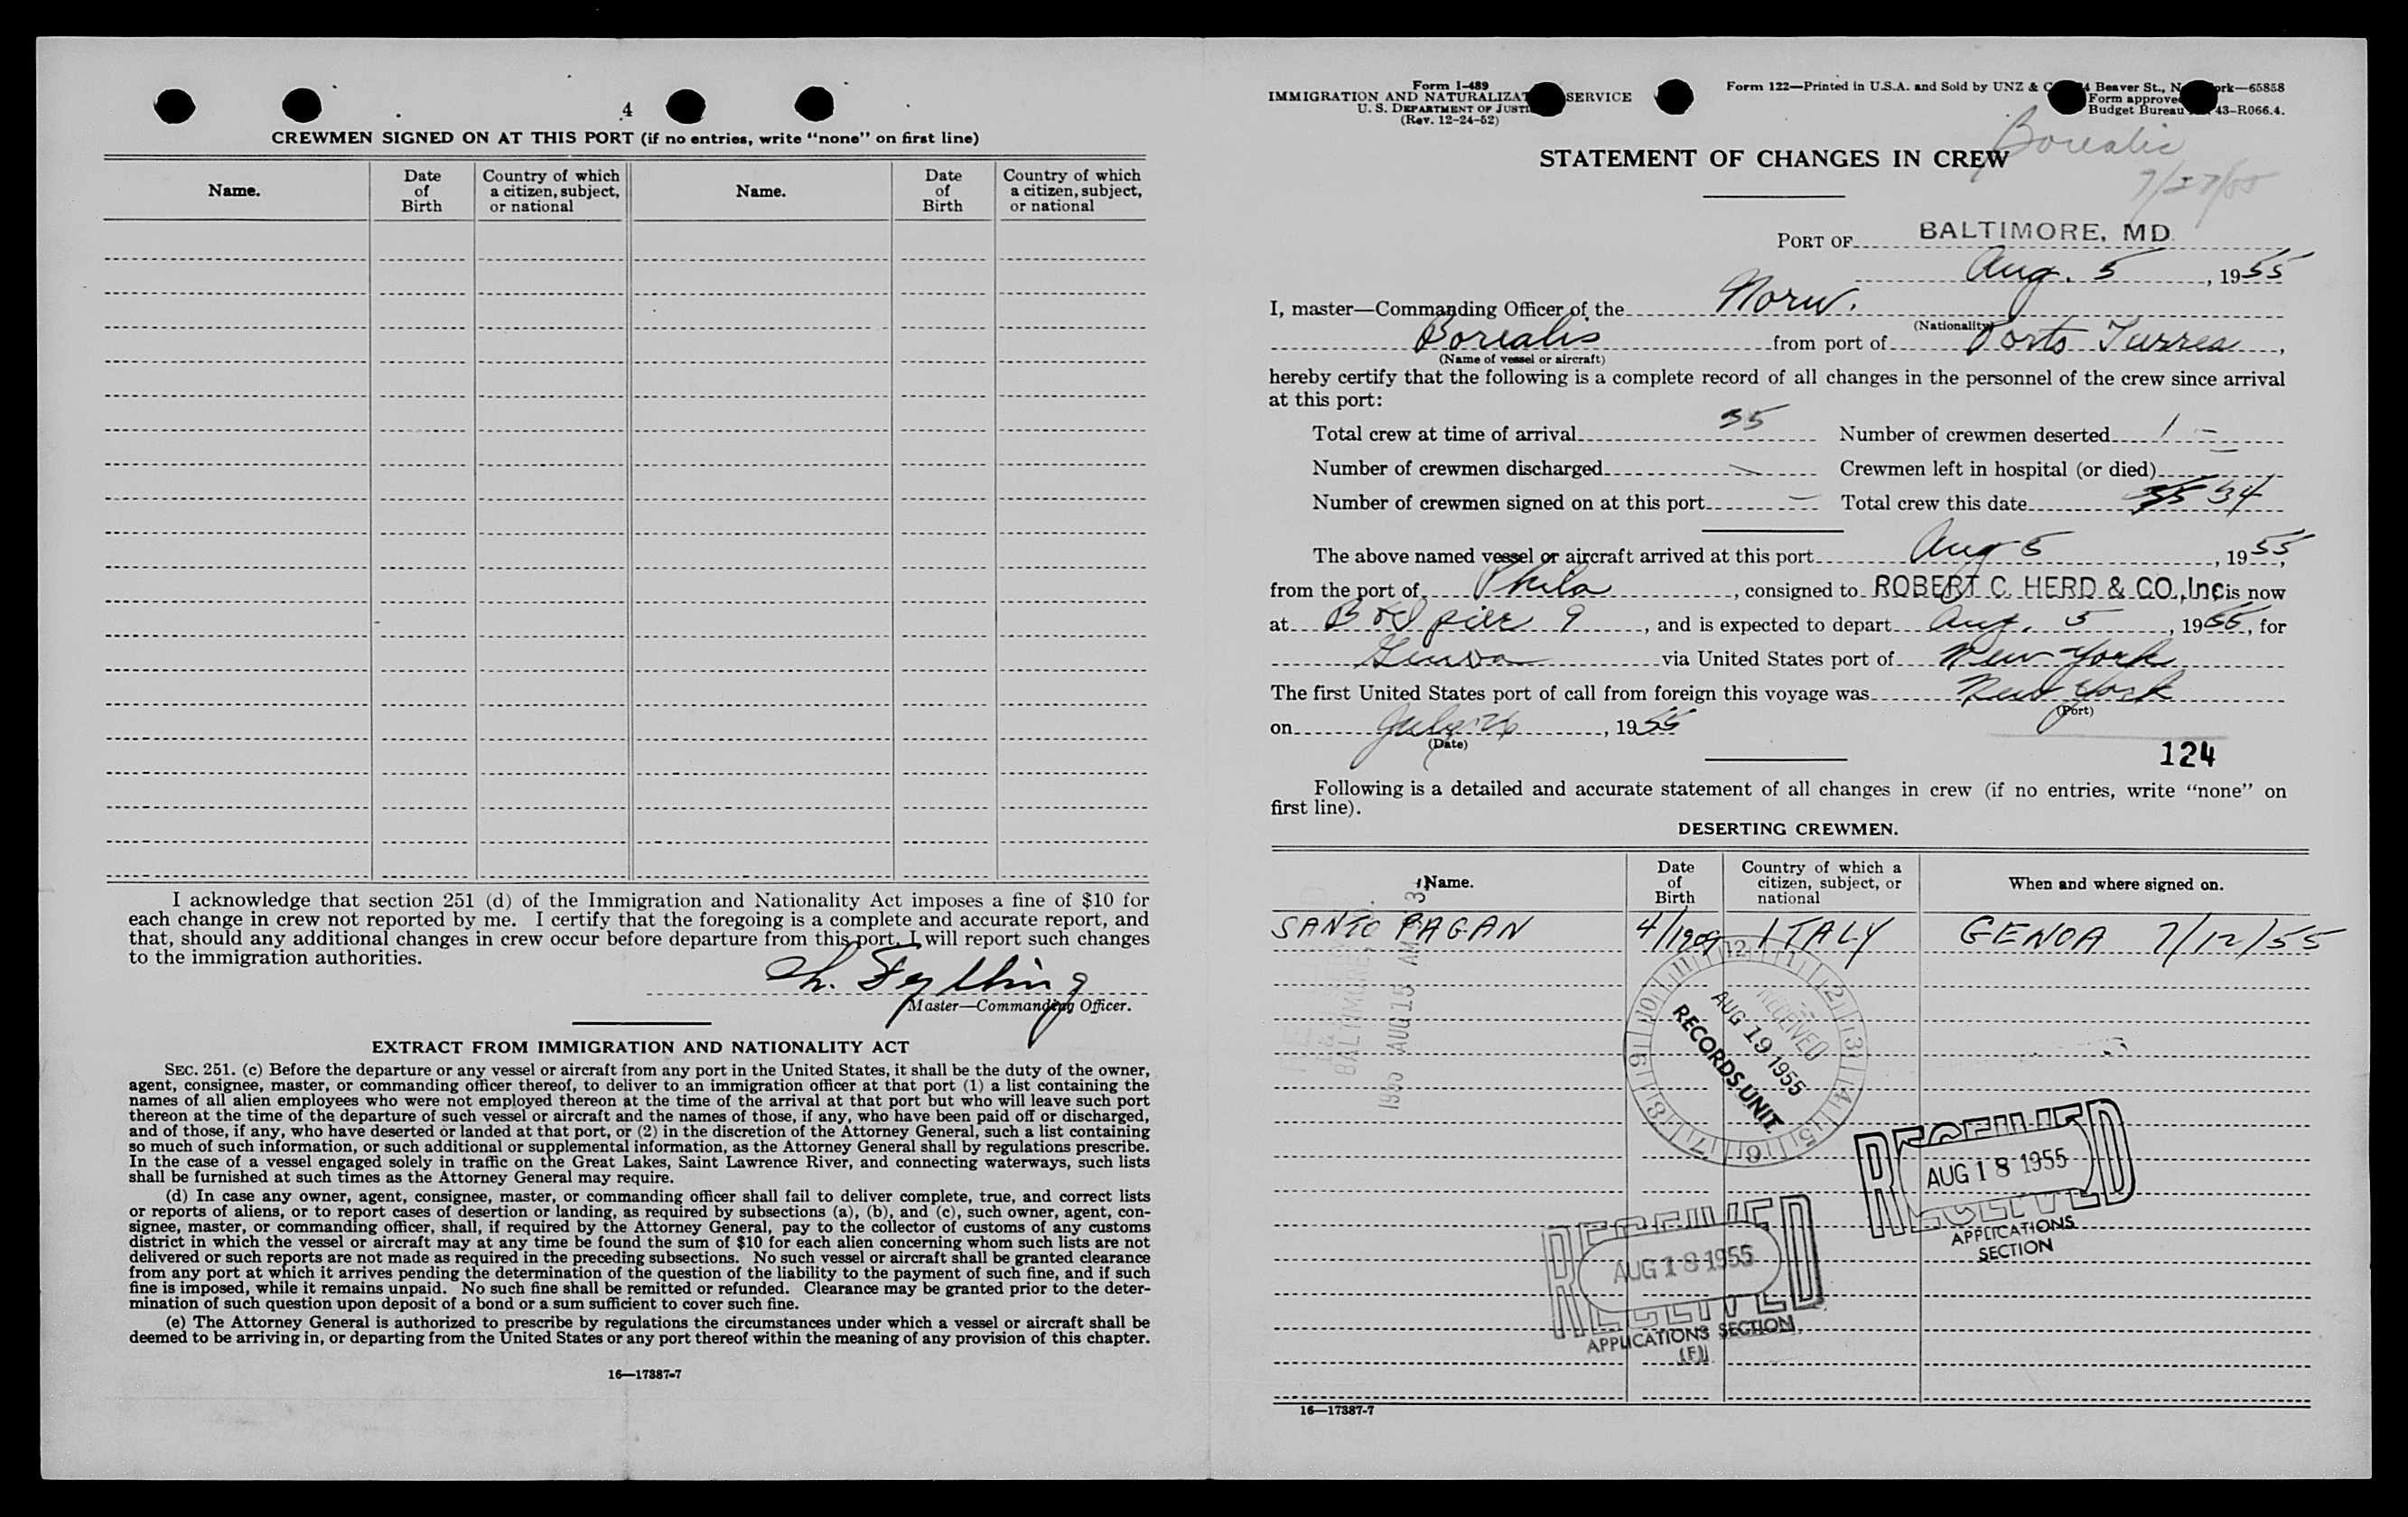 4
CREWMEN SIGNED ON AT THIS PORT (if no entries, write "none" on first line)
Name. Date of Birth Country of which a citizen, subject, or national Name. Date of Birth Country of which a citizen, subject, or national
I acknowledge that section 251 (d) of the Immigration and Nationality Act imposes a fine of $10 for
each change in crew not reported by me. I certify that the foregoing is a complete and accurate report, and
that, should any additional changes in crew occur before departure from this port, I will report such changes
to the immigration authorities.
Master—Commanding Officer.
EXTRACT FROM IMMIGRATION AND NATIONALITY ACT
SEC. 251. (c) Before the departure or any vessel or aircraft from any port in the United States, it shall be the duty of the owner,
agent, consignee, master, or commanding officer thereof, to deliver to an immigration officer at that port (1) a list containing the
names of all alien employees who were not employed thereon at the time of the arrival at that port but who will leave such port
thereon at the time of the departure of such vessel or aircraft and the names of those, if any, who have been paid off or discharged,
and of those, if any, who have deserted or landed at that port, or (2) in the discretion of the Attorney General, such a list containing
so much of such information, or such additional or supplemental information, as the Attorney General shall by regulations prescribe.
In the case of a vessel engaged solely in traffic on the Great Lakes, Saint Lawrence River, and connecting waterways, such lists
shall be furnished at such times as the Attorney General may require.
(d) In case any owner, agent, consignee, master, or commanding officer shall fail to deliver complete, true, and correct lists
or reports of aliens, or to report cases of desertion or landing, as required by subsections (a), (b), and (c), such owner, agent, con-
signee, master, or commanding officer, shall, if required by the Attorney General, pay to the collector of customs of any customs
district in which the vessel or aircraft may at any time be found the sum of $10 for each alien concerning whom such lists are not
delivered or such reports are not made as required in the preceding subsections. No such vessel or aircraft shall be granted clearance
from any port at which it arrives pending the determination of the question of the liability to the payment of such fine, and if such
fine is imposed, while it remains unpaid. No such fine shall be remitted or refunded. Clearance may be granted prior to the deter-
mination of such question upon deposit of a bond or a sum sufficient to cover such fine.
(e) The Attorney General is authorized to prescribe by regulations the circumstances under which a vessel or aircraft shall be
deemed to be arriving in, or departing from the United States or any port thereof within the meaning of any provision of this chapter.
16—17387-7
Form I-489
IMMIGRATION AND NATURALIZAT SERVICE
U. S. DEPARTMENT OF JUSTI
(Rev. 12-24-52)
Form 122—Printed in U.S.A. and Sold by UNZ & C 4 Beaver St., N rk—65858
Form approve
Budget Bureau 43-R066.4.
Borealis
7/27/55
STATEMENT OF CHANGES IN CREW
PORT OF BALTIMORE, MD.
Aug. 5, 1955
I, master—Commanding Officer of the Norw.
(Nationality)
Borealis from port of Porto Turres,
(Name of vessel or aircraft)
hereby certify that the following is a complete record of all changes in the personnel of the crew since arrival
at this port:
Total crew at time of arrival 35 Number of crewmen deserted 1 –
Number of crewmen discharged – Crewmen left in hospital (or died) –
Number of crewmen signed on at this port – Total crew this date 35 34
The above named vessel or aircraft arrived at this port Aug 5, 1955,
from the port of Phila, consigned to ROBERT C. HERD & CO., Inc is now
at B & O pier 9, and is expected to depart Aug. 5, 1955, for
Genoa via United States port of New York
The first United States port of call from foreign this voyage was New York
(Port)
on July 26, 1955
(Date)
124
Following is a detailed and accurate statement of all changes in crew (if no entries, write "none" on
first line).
DESERTING CREWMEN.
Name. Date of Birth Country of which a citizen, subject, or national When and where signed on.
SANTO PAGAN 4/1909 ITALY GENOA 7/12/55
BALTIMORE,
1955 AUG 15 AM
12 1 2 3 4 5 6 7 8 9 10 11
RECEIVED
AUG 19 1955
RECORDS UNIT
RECEIVED
AUG 18 1955
RECEIVED
APPLICATIONS
SECTION
RECEIVED
AUG 18 1955
RECEIVED
APPLICATIONS SECTION
(F)
16—17387-7